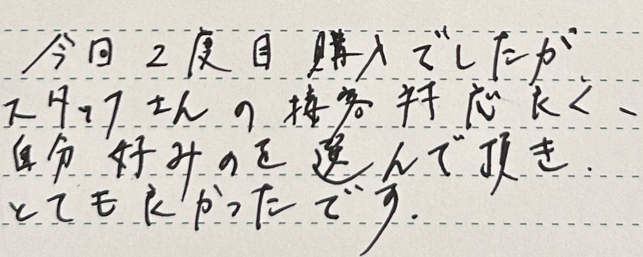 今回2度目購入でしたが
スタッフさんの接客対応良く、
自分好みのを選んで頂き.
とても良かったです.